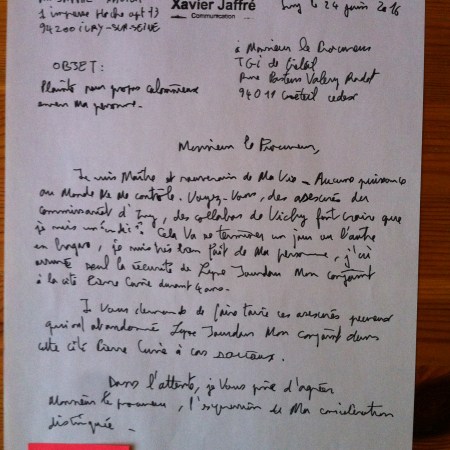 Xavier Jaffré
Communication
Ivry le 24 juin 2016
1 impasse Hoche apt 13
94200 IVRY-SUR-SEINE
à Monsieur le Procureur
TGI de Créteil
Rue Pasteur Valery Radot
94011 Créteil cedex
OBJET:
Plainte pour propos calomnieux
envers ma personne.
Monsieur le Procureur,
Je suis Maître et souverain de Ma Vie. Aucune puissance
au Monde Ne Me contrôle. Voyez-Vous, des
commissariat d'Ivry, des collabos de Vichy font croire que
je suis Cela Va se terminer un jour ou l'autre
en je suis très bien fait de Ma personne, j'ai
assuré seul la sécurité de Mon conjoint
à la cité Pierre Curie durant 4 ans.
Je Vous demande de faire taire ces
qui ont abandonné Mon conjoint dans
cette cité Pierre Curie à ces
Dans l'attente, je Vous prie d'agréer
Monsieur le procureur, l'expression de Ma considération
distinguée -